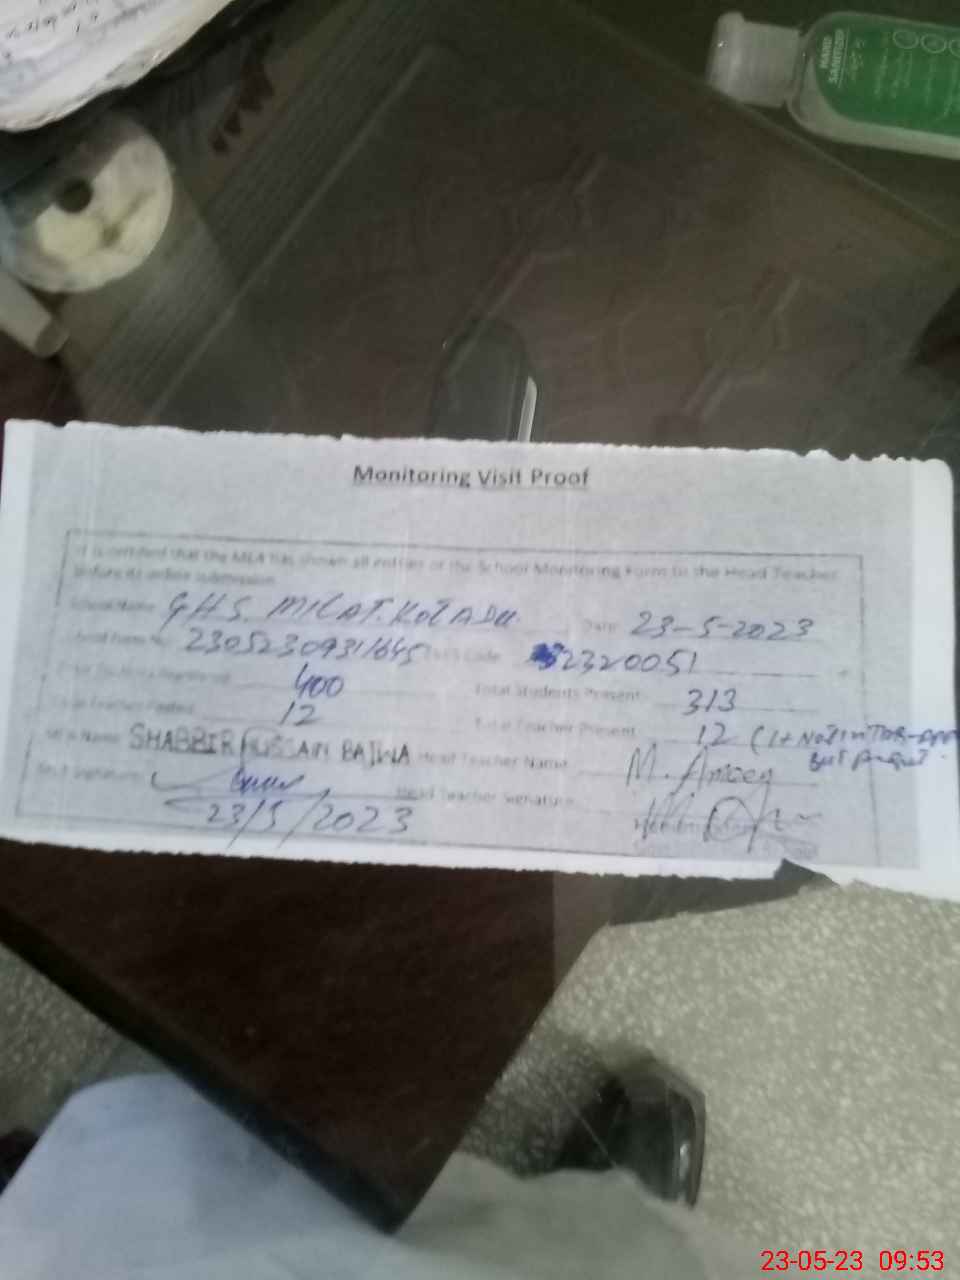 HAND
SANITIZER
Monitoring Visit Proof
It is certified that the MEA has shown all entries of the School Monitoring Form to the Head Teacher
before its online submission
School Name G.H.S. MILAT. KOT ADU. Date 23-5-2023
School Form No. 23052309311645 Code 32320051
400 Total Students Present 313
Total Teacher Posted 12 Total Teacher Present 12 (1+ NOT IN TOR-APP
MEA Name SHABBIR HUSSAIN BAJWA Head Teacher Name M. But
MEA Signature Head Teacher Signature
23/5/2023
23-05-23 09:53